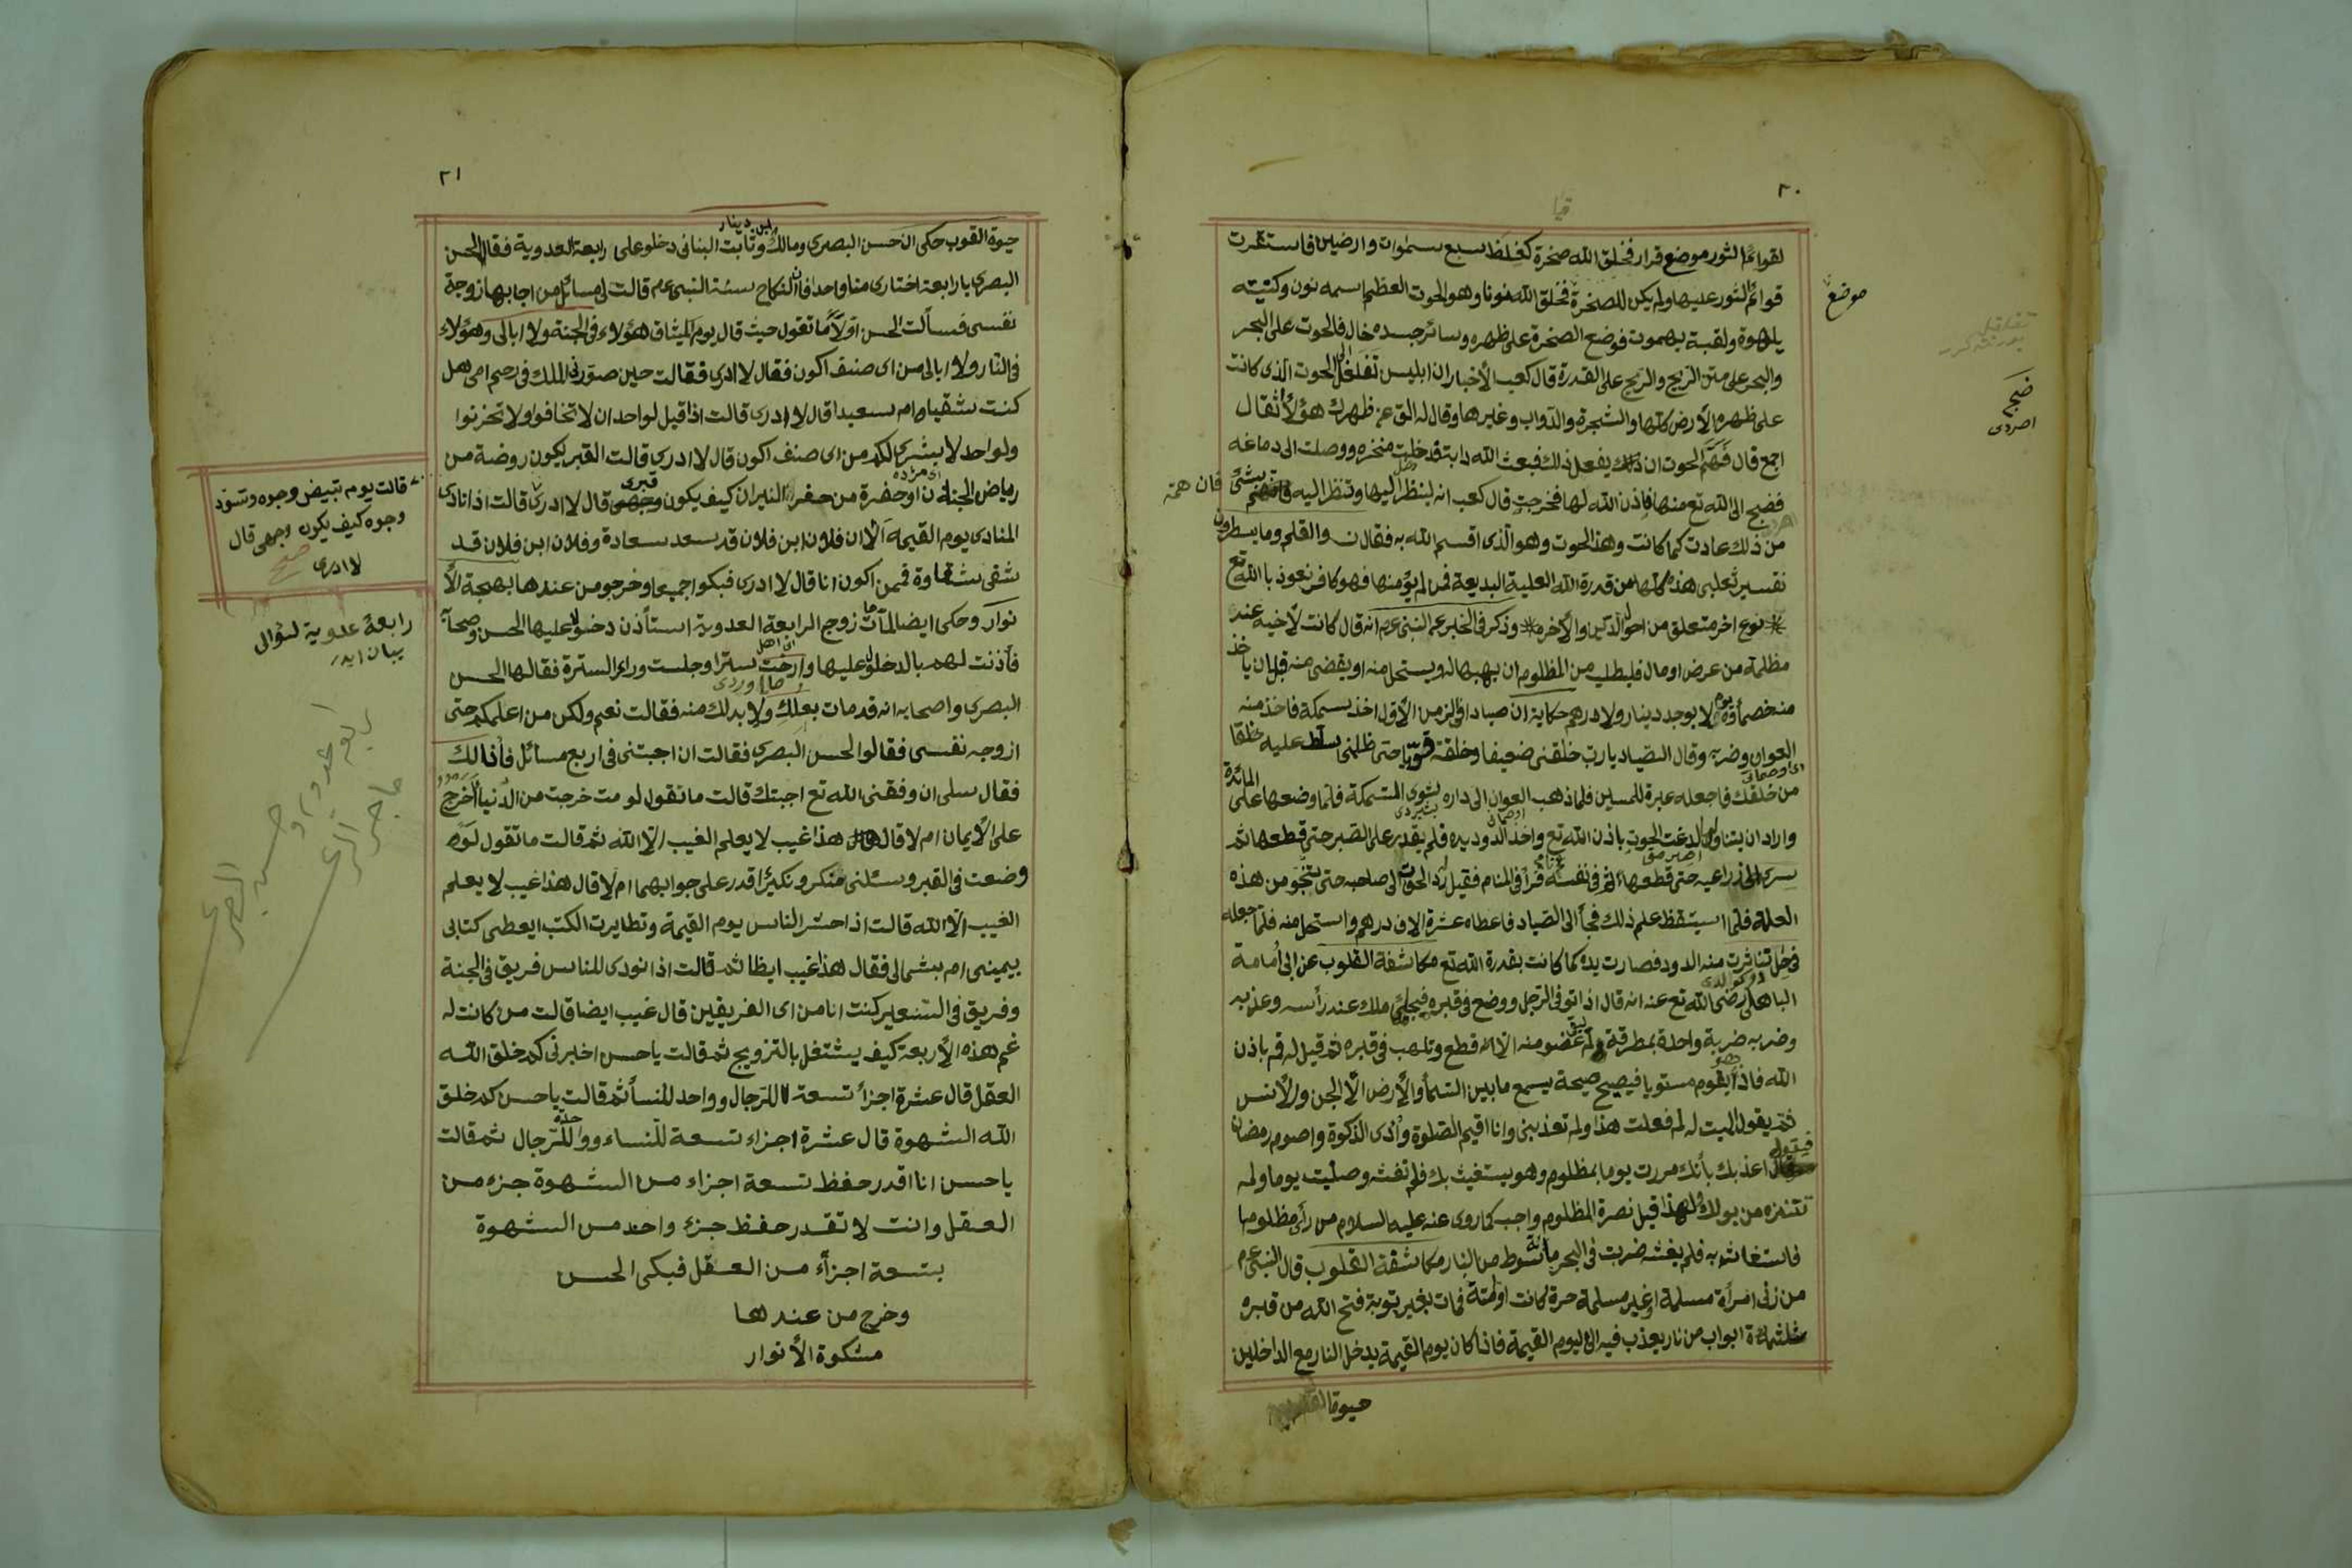 ٢٠
لقوائم الثور موضع قرار فخلق الله صخرة كغلظ سبع سموات وارضين فاستقرت
قوائم الثور عليها ولم يكن للصخرة فخلق الله نونا وهو الحوت العظيم اسمه نون وكنيته
موضع
يلهوة ولقبة بهموت فوضع الصخرة على ظهره وسائر جسده خال فالحوت على البحر
والبحر على متن الريح والريح على القدرة قال كعب الأخبار ان ابليس تغلغل الى الحوت الذى كانت
على ظهره الأرض كلها والشجرة والدواب وغيرها وقال له الق عن ظهرك هؤلأ أثقال
اجمع قال فهم الحوت ان يفعل ذلك فبعث الله دابة فدخلت منخره ووصلت الى دماغه
فضج الى الله تع منها فاذن الله لها فخرجت قال كعب انه لينظر اليها وتنظر اليه فان همة بشئ
ضجيج
من ذلك عادت كما كانت وهذا الحوت وهو الذى اقسم الله به فقال ن والقلم وما يسطرون
تفسير ثعلبى هذه كلها من قدرة الله العلية البديعة فمن لم يؤمنها فهو كافر نعوذ با الله تع
نوع اخر متعلق من احوال الدين والأخره وذكر فى الخبر عم النبى عم انه قال كانت لأخيه عند
مظلمة من عرض او مال فليطلب من المظلوم ان يهبها له ويستحل منه او يقضى منه قبل ان يأخذ
منه خصمأؤه يوم لا يوجد دينار ولا درهم حكاية ان صياد افى الزمن الأول اخذ سمكة فاخذ منه
العوان وضربه وقال الصياد يارب خلقنى ضعيفا وخلقة قويا حتى ظلمنى سلط عليه خلقا
من خلقك فاجعله عبرة للمسلين فلما ذهب العوان الى داره بشوى السمكة فلما وضعها على المائدة
واراد ان يتناول لدغت الحوت باذن الله تع واخذ الدود يده فلم يقدر على الصبر حتى قطعها ثم
سرى الى ذراعيه حتى قطعها فى نفسه فرأ فى المنام فقيل رد الحق الى صاحبه حتى تنجو من هذه
العلمة فلما استيقظ علم ذلك فجأ الى الصياد فاعطاه عشرة الاف درهم واستحل منه فلما جعله
فى حل تناثرت منه الدود فصارت يده كما كانت بقدرة الله تع مكاشفة القلوب عن ابى أمامة
الباهلى رضى الله تع عنه انه قال اذا توفى الرجل ووضع فى قبره فيجلئ ملك عند رأسه وعذبه
وضربه ضربة واحدة بمطرقة لم يبق عضو منه الا قطع وتلهب فى قبره ثم قيل له قم باذن
الله فاذا يقوم مستويا فيصيح صيحة يسمع ما بين السمأ والأرض الا الجن والأنس
ثم يقول الميت له لم فعلت هذا ولم تعذبنى وانا اقيم الصلوة وأدى الزكوة واصوم رمضان
فيقول اعذبك بأنك مررت يوما بمظلوم وهو يستغيث بك فلم تغثه وصليت يوما ولم
تتنزه من بولك لهذا قيل نصرة المظلوم واجب كما روى عنه عليه السلام من رأى مظلوما
فاستغاث به فلم يغثه ضربت فى البحر مائة سوط من النار مكاشفة القلوب قال النبى عم
من زنى امرأة مسلمة او غير مسلمة حرة كانت او امة فمات بغير توبة فتح الله من قبره
ثلثمائة ابواب من نار يعذب فيه الى يوم القيمة فاذا كان يوم القيمة يدخل النار مع الداخلين
حيوة
٢١
حيوة القوب حكى ان حسن البصرى ومالك ابن دينار وثابت البنانى دخلو على رابعة العدوية فقال الحسن
البصرى يا رابعة اختارى منا واحدا فان النكاح سنة النبى عم قالت لى مسائل من اجابها زوجة
نفسى فسألت الحسن اولا ما تقول حيث قال يوم الميثاق هؤلاء فى الجنة ولا ابالى وهؤلاء
فى النار ولا ابالى من اى صنف اكون فقال لا ادرى فقالت حين صورنى الملك فى رحم امى هل
كنت شقيا وام سعيدا قال لا ادرى قالت اذا قيل لواحد ان لا تخافوا ولا تحزنوا
ولواحد لا بشرى لكم من اى صنف اكون قال لا ادرى قالت القبر يكون روضة من
رياض الجنان او حفرة من حفر النيران كيف يكون قبرى قال لا ادرى قالت اذا نادى
قالت يوم تبيض وجوه وتسود
وجوه كيف يكون وجهى قال
لا ادرى صح
المنادى يوم القيمة الأ ان فلان ابن فلان قد سعد سعادة وفلان ابن فلان قد
شقى شقاوة فمن اكون انا قال لا ادرى فبكوا جميعا وخرجو من عندها بهجة الأ
نوار وحكى ايضا لما مات زوج الرابعة العدوية استأذن دخول عليها الحسن وصحابه
رابعة عدوية لسؤالى
بيان ايدر
فأذنت لهم بالدخلول عليها وارخت سترا وجلست وراء السترة فقال لها الحسن
البصرى واصحابه انه قد مات بعلك ولا بد لك منه فقالت نعم ولكن من اعلمكم حتى
ازوجه نفسى فقالوا الحسن البصرى فقالت ان اجبتنى فى اربع مسائل فأنا لك
فقال سلى ان وفقنى الله تع اجبتك قالت ما تقول لو مت خرجت من الدنيا أخرج
على الأيمان ام لا قال هذا غيب لا يعلم الغيب الا الله ثم قالت ما تقول لو
وضعت فى القبر وسئلنى منكر ونكير اقدر على جوابهما ام لا قال هذا غيب لا يعلم
الغيب الا الله قالت اذا حشر الناس يوم القيمة وتطايرت الكتب ايعطى كتابى
بيمينى ام بشمالى فقال هذا غيب ايظا ثم قالت اذا نودى للناس فريق فى الجنة
وفريق فى السعير كنت انا من اى الفريقين قال غيب ايضا قالت من كانت له
غم هذه الأربعة كيف يشتغل بالتزويج ثم قالت يا حسن اخبرنى كم خلق الله
العقل قال عشرة اجزأ تسعة للرجال وواحد للنسأ ثم قالت يا حسن كم خلق
الله الشهوة قال عشرة اجزاء تسعة للنساء وواحدة للرجال ثم قالت
يا حسن انا اقدر حفظ تسعة اجزاء من الشهوة جزه من
العقل وانت لا تقدر حفظ جزء واحد من الشهوة
بتسعة اجزأء من العقل فبكى الحسن
وخرج من عندها
مشكوة الأنوار